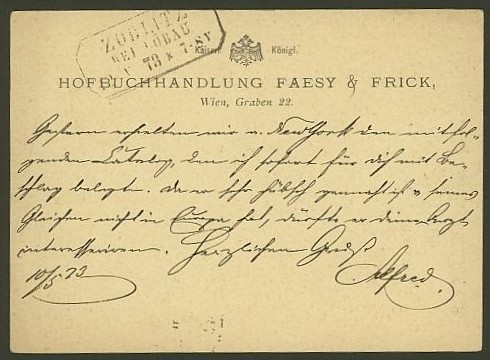 ZOBLITZ
BEI LÖBAU
73 * 7-8V
Kaiserl. Königl.
HOFBUCHHANDLUNG FAESY & FRICK,
Wien, Graben 22.
Gestern erhielten wir v. NewYork den mitfol-
genden Catalog, den ich sofort für dich mit Be-
schlag belegte. Da er sehr hübsch gemacht ist u seines
Gleichen nicht in Europa hat, dürfte er deine
interessieren. Herzlichen Gruß
10/5 73 Alfred.